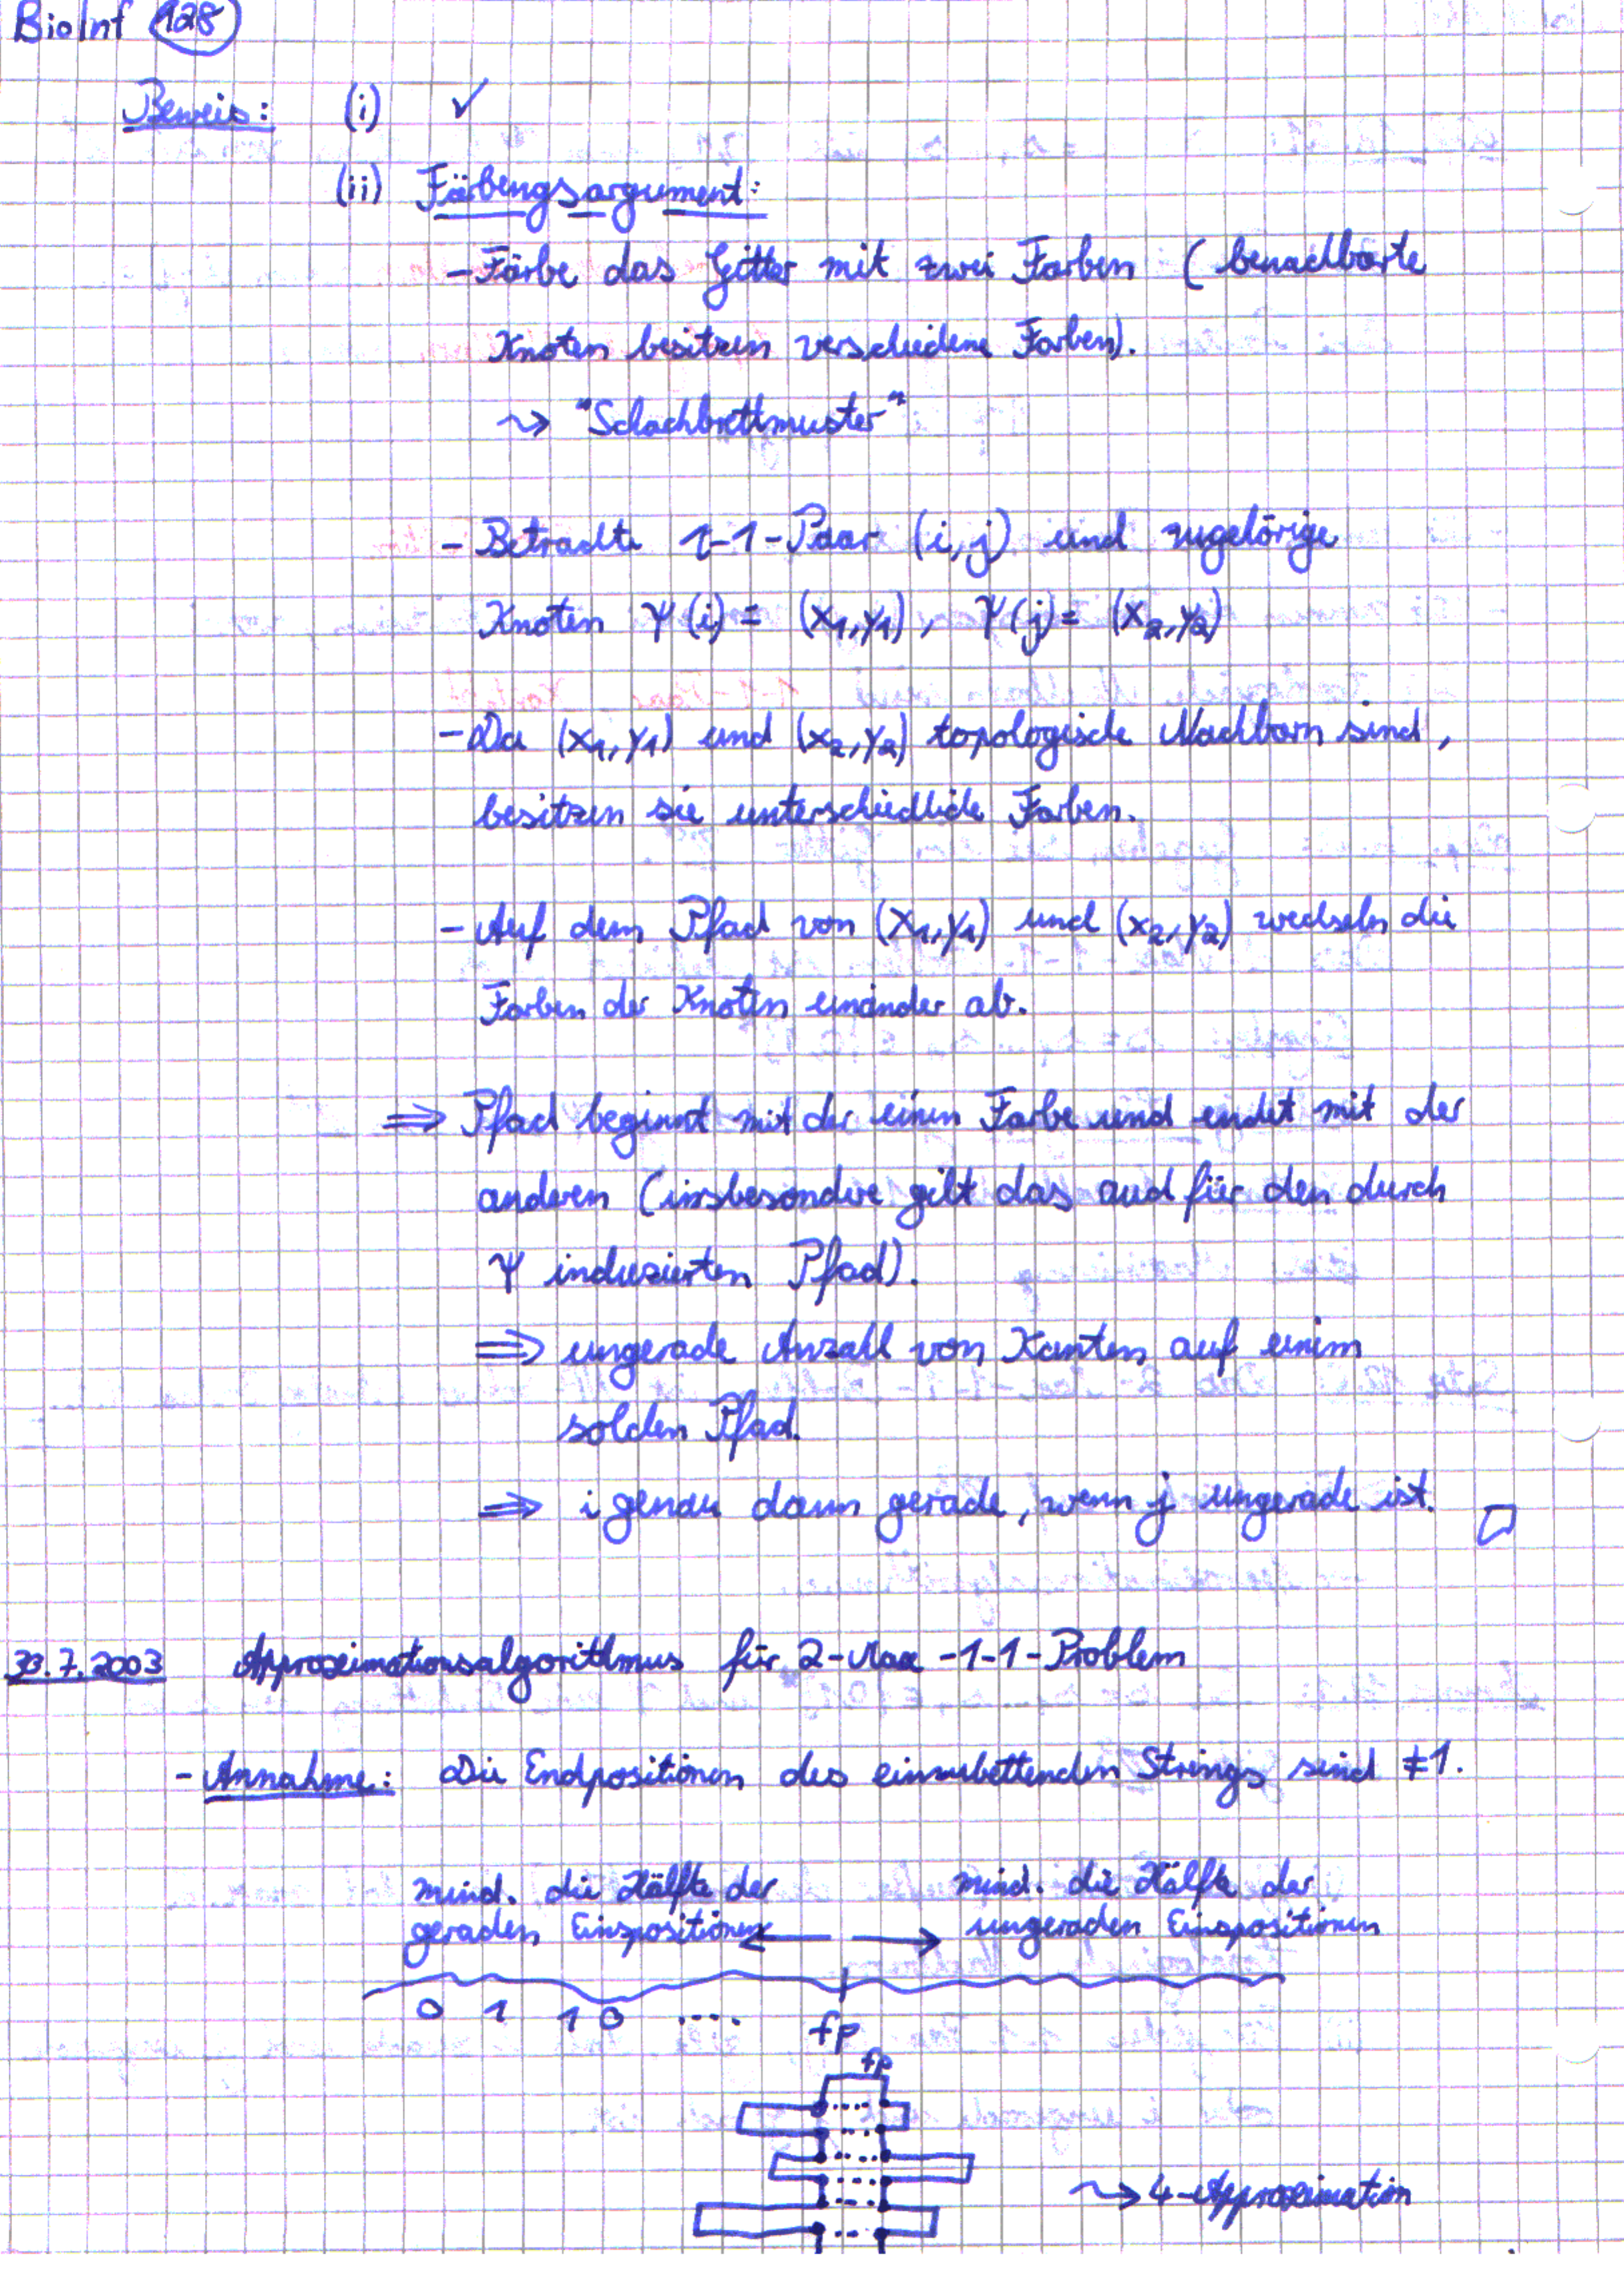 BioInf 128
Beweis: (i) ✓
(ii) Färbungsargument:
- Färbe das Gitter mit zwei Farben (benachbarte
Knoten besitzen verschiedene Farben).
⇝ "Schachbrettmuster"
- Betrachte 1-1-Paar (i,j) und zugehörige
Knoten Ψ(i) = (x₁,y₁), Ψ(j) = (x₂,y₂)
- Da (x₁,y₁) und (x₂,y₂) topologische Nachbarn sind,
besitzen sie unterschiedliche Farben.
- Auf dem Pfad von (x₁,y₁) und (x₂,y₂) wechseln die
Farben der Knoten einander ab.
⇒ Pfad beginnt mit der einen Farbe und endet mit der
anderen (insbesondere gilt das auch für den durch
Ψ induzierten Pfad).
⇒ ungerade Anzahl von Kanten auf einem
solchen Pfad.
⇒ i genau dann gerade, wenn j ungerade ist. □
30.7.2003 Approximationsalgorithmus für 2-Max-1-1-Problem
- Annahme: Die Endpositionen des einzubettenden Strings sind ≠1.
mind. die Hälfte der mind. die Hälfte der
geraden Einspositionen ← → ungeraden Einspositionen
0 1 1 0 .... fp
fp
⇝ 4-Approximation